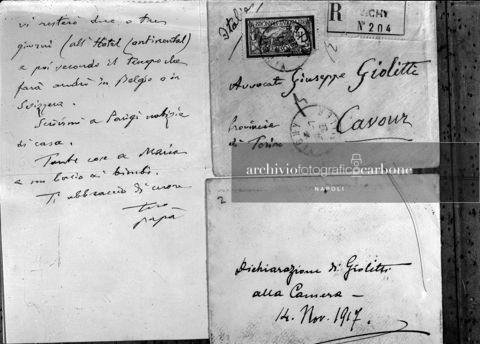 vi resterò due o tre
giorni (all'Hotel Continental)
e poi secondo il tempo che
farà andrò in Belgio o in
Svizzera.
Scrivimi a Parigi notizie
di casa.
Tante cose a Maria
e un bacio ai bimbi.
Ti abbraccio di cuore
tuo
papà
Italie
R
VICHY
Nº 204
Avvocato Giuseppe Giolitti
Cavour
Provincia
di Torino
archiviofotograficocarbone
NAPOLI
2
Dichiarazione di Giolitti
alla Camera —
14. Nov. 1917.